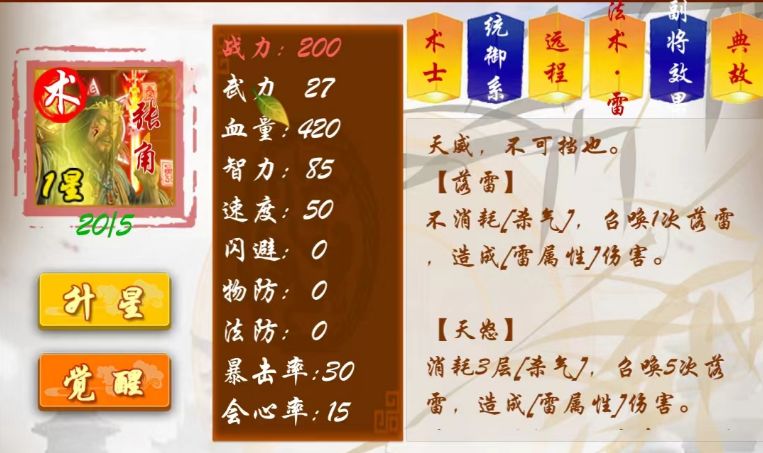 术
张角
1星
20/5
升星
觉醒
战力：200
武力 27
血量：420
智力：85
速度：50
闪避：0
物防：0
法防：0
暴击率：30
会心率：15
术士
统御系
远程
法术·雷
副将效果
典故
天威，不可挡也。
【落雷】
不消耗[杀气]，召唤1次落雷
，造成[雷属性]伤害。
【天怒】
消耗3层[杀气]，召唤5次落
雷，造成[雷属性]伤害。